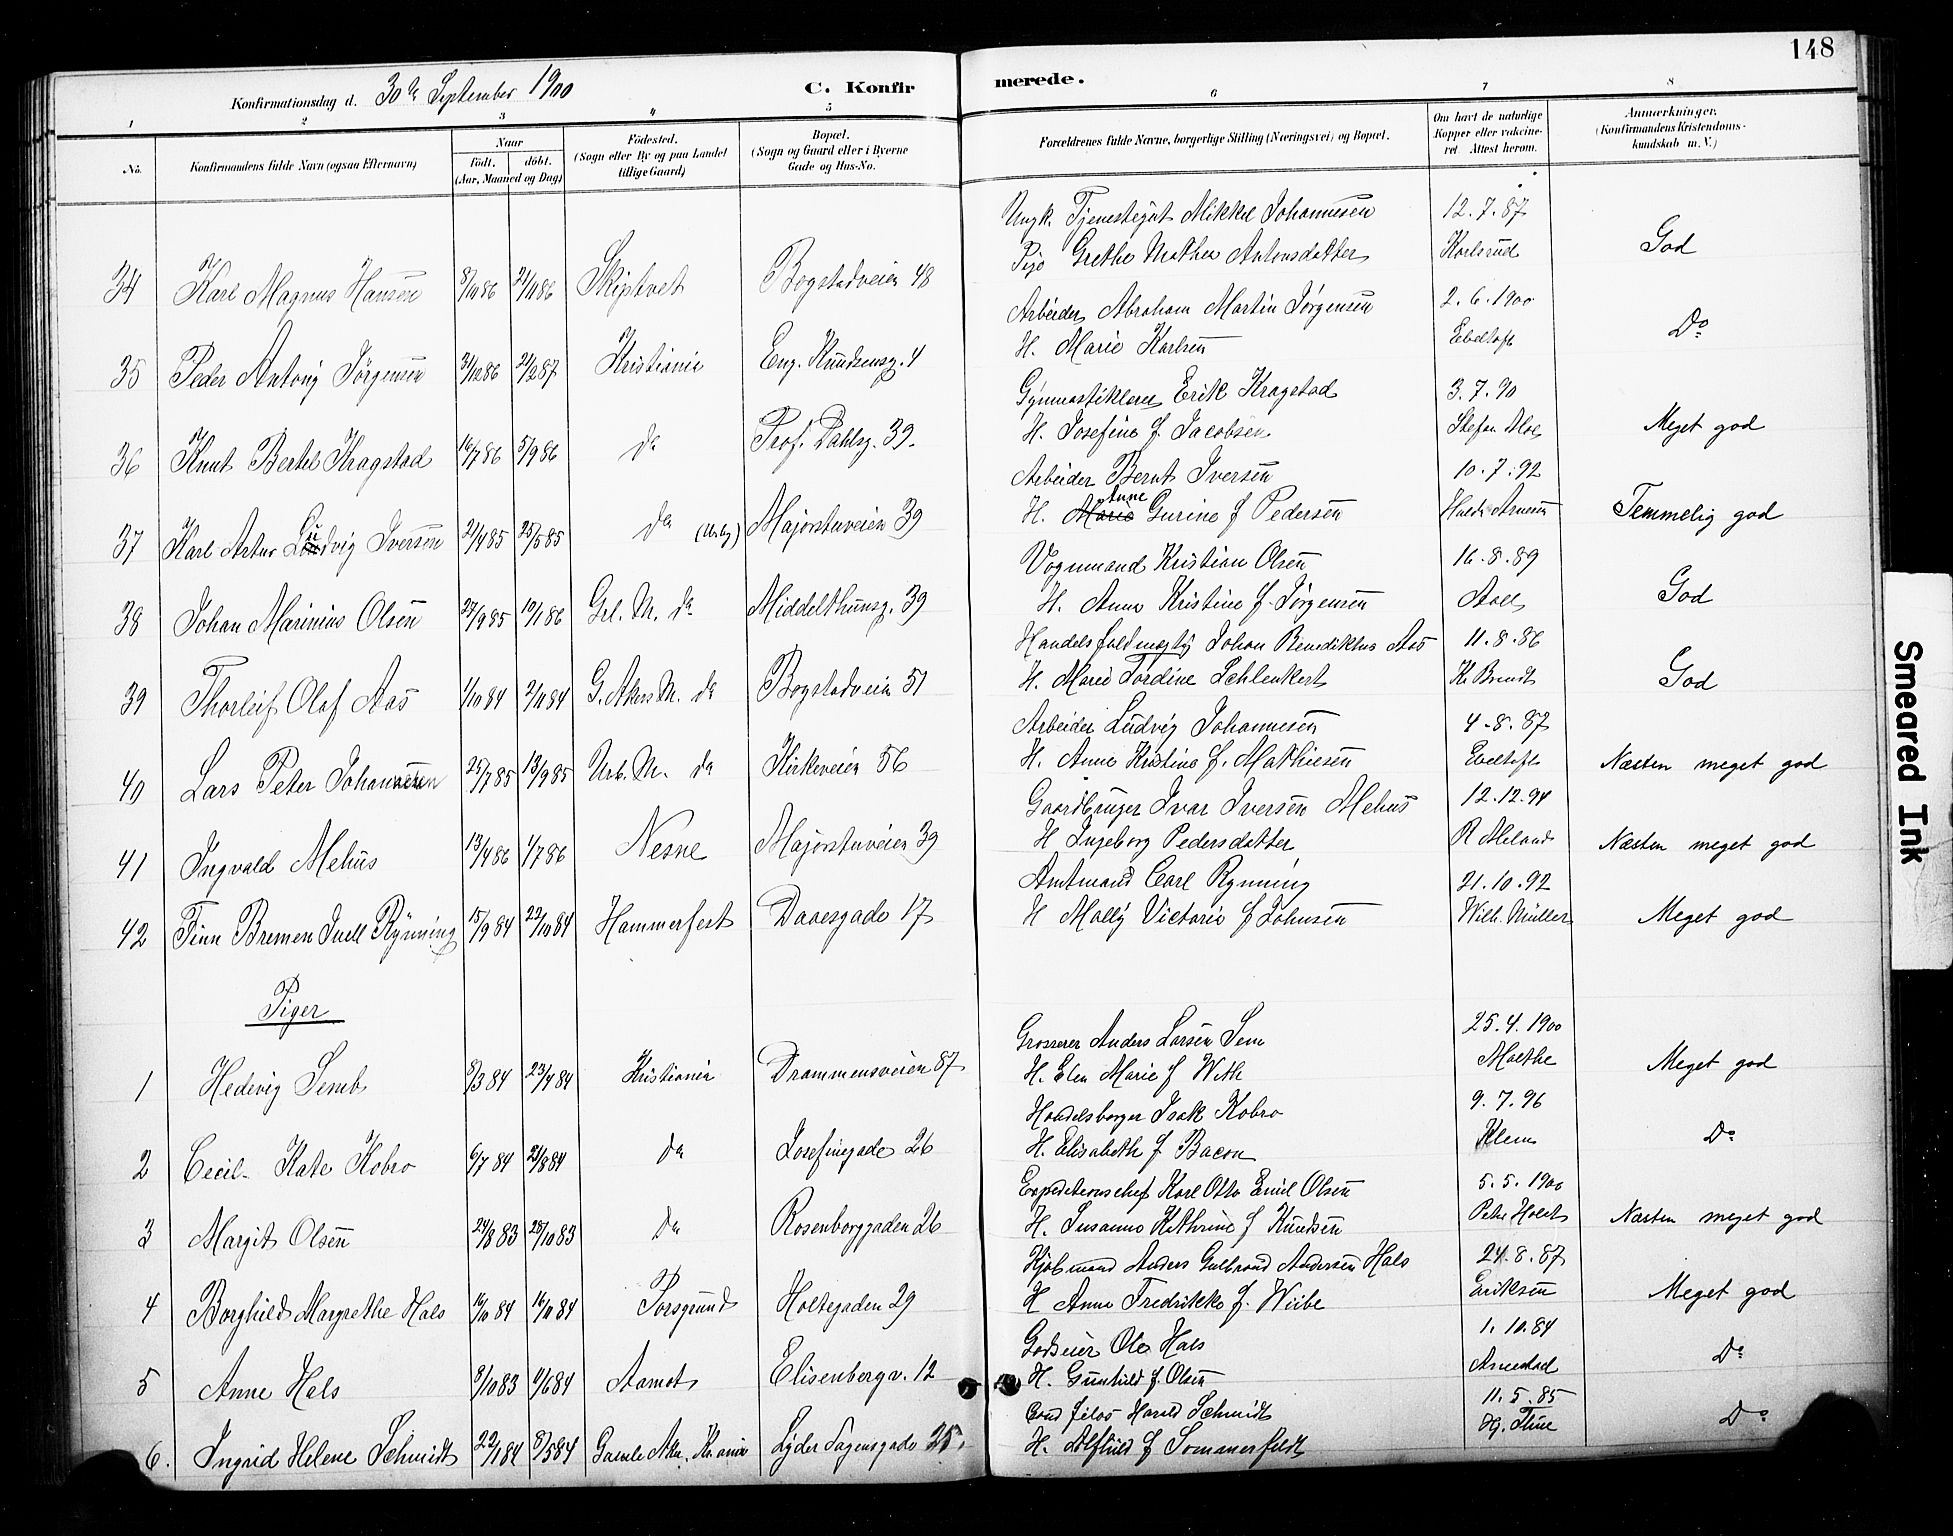 148
Konfirmationsdag d. 30te September 1900
C. Konfirmerede.
1 2 3 4 5 6 7 8
No.
Konfirmandens fulde Navn (ogsaa Efternavn)
Naar
Født. døbt.
(Aar, Maaned og Dag)
Fødested.
(Sogn eller By og paa Landet
tillige Gaard)
Bopæl.
(Sogn og Gaard eller i Byerne
Gade og Hus-No.
Forældrenes fulde Navne, borgerlige Stilling (Næringsvei) og Bopæl.
Om havt de naturlige
Kopper eller vakcine-
ret Attest herom.
Anmerkninger.
(Konfirmandens Kristendoms-
kundskab m. V.)
Ungk. Tjenestegut Mikkel Johannesen 12.7.87
34 Karl Magnus Hansen 8/10 86 21/11 86 Skiptvet Bogstadveien 48 Pige Grethe Mathea Antonsdatter Karlsrud God
Arbeider Abraham Martin Jørgensen 2.6.1900
35 Peder Antonij Jørgensen 31/12 86 21/2 87 Kristiania Eug. Knudsensg. 4 H. Marie Karlsen Ebeltoft Do
Gymnastiklærer Erik Kragstad 3.7.90
36 Knut Bertel Kragstad 16/7 86 5/9 86 do Prof. Dahlsg. 39. H. Josefine f. Jacobsen Stefan Aloe Meget god
Arbeider Bernt Iversen 10.7.92
37 Karl Artur Ludvig Iversen 21/4 85 25/5 85 do Majorstuveien 39 H. Marie Anne Gurine f Pedersen Temmelig god
Vognmand Kristian Olsen 16.8.89
38 Johan Marinius Olsen 27/9 85 10/1 86 Grl. M. do Middelthunsg. 39 H. Anna Kristine f. Jørgensen Aall God
Handelsfuldmegtig Johan Benediktus Aas 11.8.86
39 Thorleif Olaf Aas 1/10 84 2/11 84 G. Akers M. do Bogstadveien 51 H. Marie Tordine Schlenkert Kr Brandt God
Arbeider Ludvig Johannesen 4.8.87
40 Lars Peter Johannesen 25/7 85 13/9 85 Urb. M. do Kirkeveien 56 H. Anne Kristine f. Mathiesen Ebeltoft Næsten meget god
Gaardbruger Ivar Iversen Mehus 12.12.94
41 Ingvald Mehus 13/4 86 1/7 86 Nesne Majorstuveien 39 H Ingeborg Pedersdatter R Meland Næsten meget god
Amtmand Carl Rynning 21.10.92
42 Finn Bremen Juell Rynning 15/9 84 22/10 84 Hammerfest Daaesgade 17 H Molly Victoria f Johnsen Wilh. Müller Meget god
Piger
Grosserer Anders Larsen Sem 25.4.1900
1 Hedevig Semb 8/3 84 23/4 84 Kristiania Drammensveien 87 H. Elen Marie f With Malthe Meget god
Handelsborger Isak Kobro 9.7.96
2 Cecil- Kate Kobro 6/7 84 21/8 84 do Josefinegade 26 H. Elisabeth f Bacon Klem Do
Expeditionschef Karl Otto Emil Olsen 5.5.1900
3 Margit Olsen 24/8 83 28/10 83 do Rosenborggaden 26 H. Susanne Kathrine f Knudsen Peter Holst Næsten meget god
Kjøbmand Anders Gulbrand Andersen Hals 24.8.87
4 Borghild Margrethe Hals 16/10 84 16/11 84 Porsgrund Holtegaden 29 H Anna Fredrikke f. Wiibe Eriksen Meget god
Godseier Ole Hals 1.10.84
5 Anne Hals 8/10 83 11/6 84 Aamot Elisenbergv. 12 H. Gunhild f. Olsen Do
Cand filos Harald Schmidt 11.5.85
6. Ingrid Helene Schmidt 22/1 84 8/5 84 Gamle Aker, Kr.ania Lyder Sagensgade 25. H. Alfhild f Sommerfeldt Hj. Thue Do
Smeared Ink